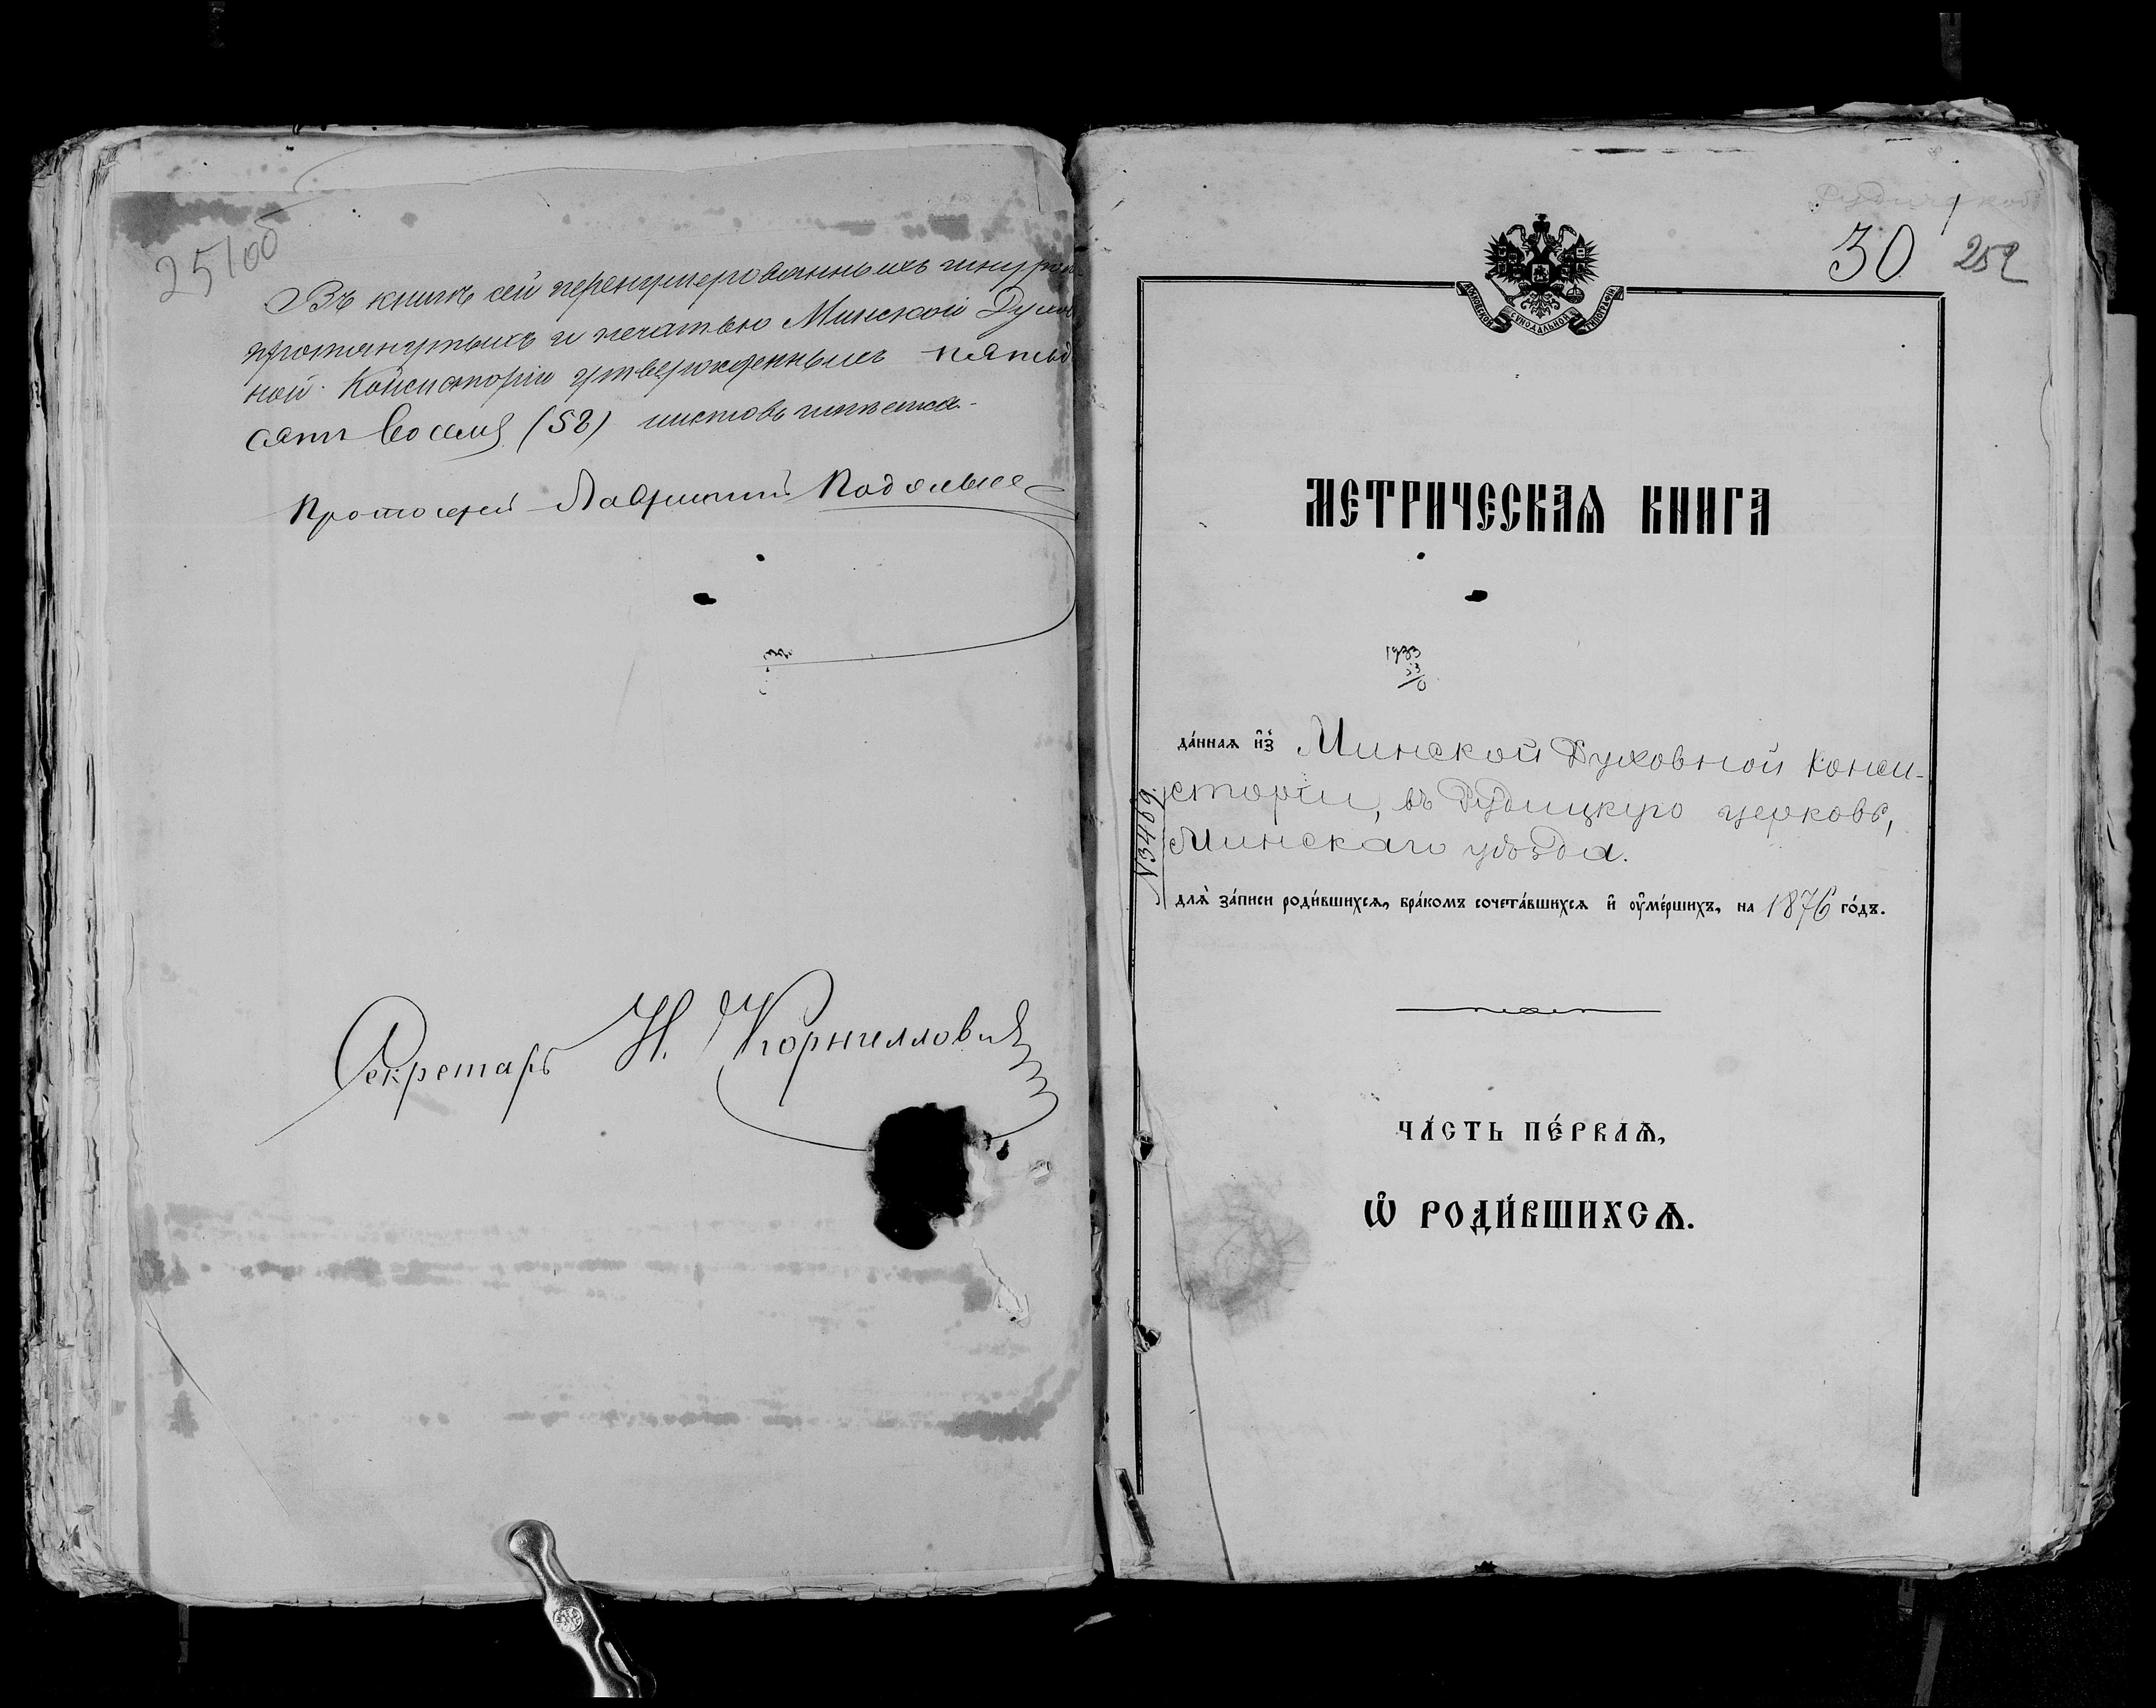 251об
Въ книгѣ сей перенумерованныхъ шнуромъ
протянутыхъ и печатью Минской Духов
ной Консисторіи утвержденныхъ пятьде
сятъ восемь (58) листовъ
Протоіерей
Секретарь Н. Корниллович
Рудицкой
30 252
МОСКОВСКОЙ СѴНОДАЛЬНОЙ ТИПОГРАФІИ
МЕТРИЧЕСКАѦ КНИГА
да́ннаѧ и҆з̾ Минской Духовной Конси-
сторіи, въ Рудицкую церковь,
Минскаго уѣзда.
№3469.
длѧ̀ за́писи роди́вшихсѧ, бра́комъ сочета́вшихсѧ и҆ ᲂу҆ме́ршихъ, на 1876 го́дъ.
ЧА́СТЬ ПЕ́РВАѦ,
Ѽ РОДИ́ВШИХСѦ.